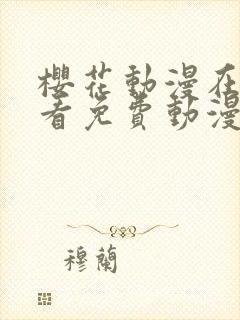 櫻花動漫在
看免費動漫
穆蘭